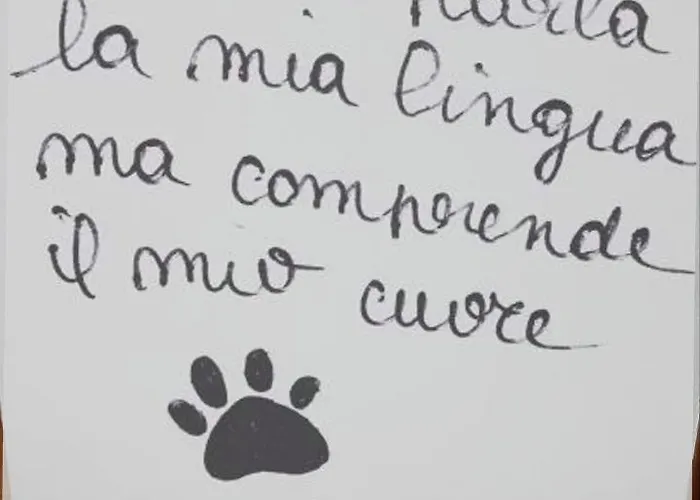 parla
la mia lingua
ma comprende
il mio cuore